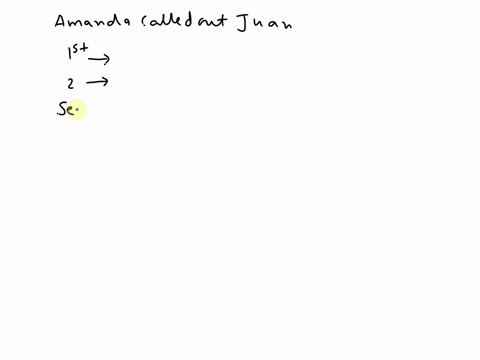 Amanda called out Juan
1st →
2 →
Se